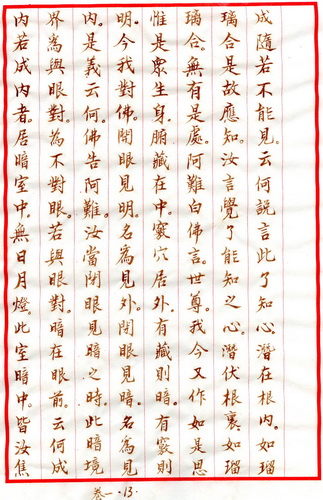 成隨若不能見。云何說言此了知心。潛在根內。如瑠
璃合。是故應知。汝言覺了能知之心。潛伏根裏。如瑠
璃合。無有是處。阿難白佛言。世尊。我今又作如是思
惟。是眾生身。腑藏在中。竅穴居外。有藏則暗。有竅則
明。今我對佛。開眼見明。名為見外。閉眼見暗。名為見
內。是義云何。佛告阿難。汝當閉眼見暗之時。此暗境
界為與眼對。為不對眼。若與眼對。暗在眼前。云何成
內若成內者。居暗室中。無日月燈。此室暗中。皆汝焦
卷一·13·